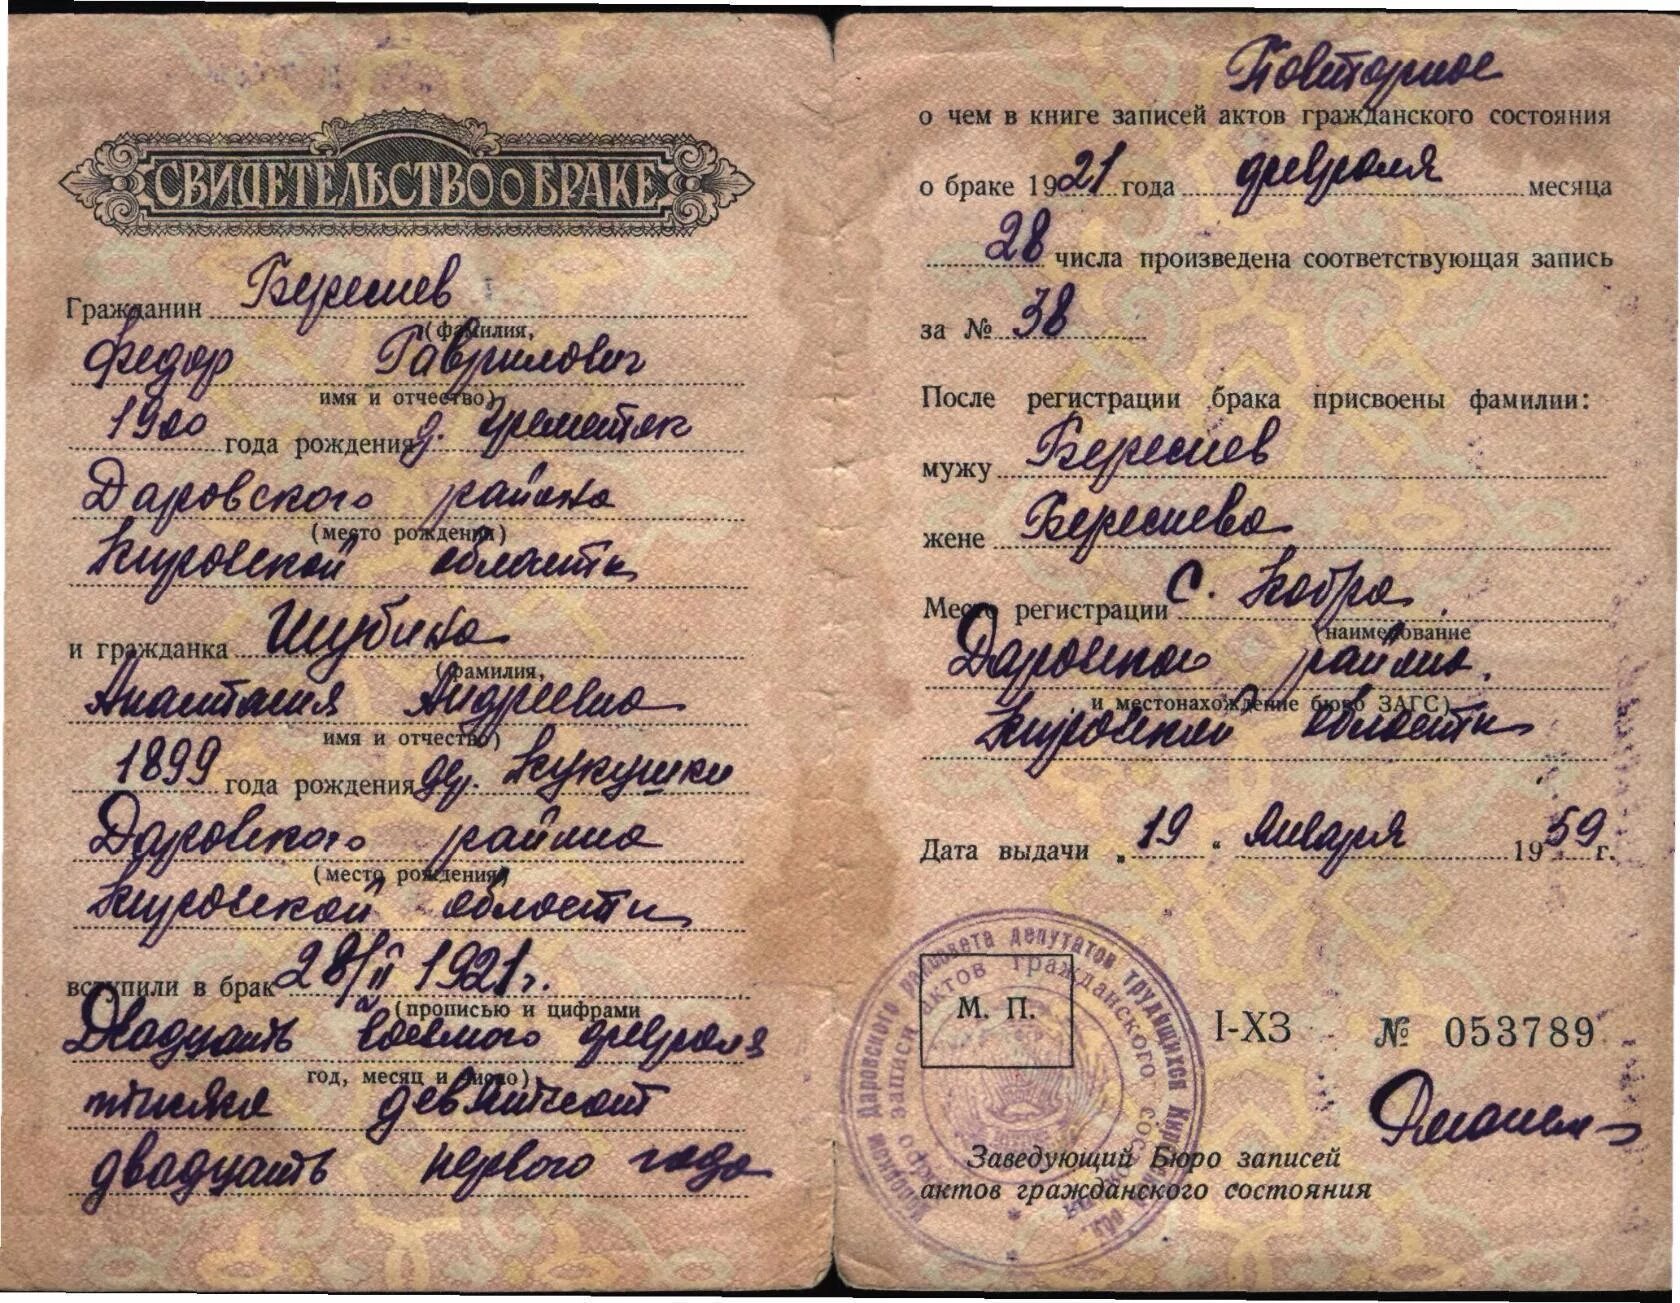 СВИДЕТЕЛЬСТВО о БРАКЕ
Гражданин Береснев
(фамилия,
Федор Гаврилович
имя и отчество)
1900 года рождения д.
Даровского района
(место рождения)
Кировской области
и гражданка Шубина
(фамилия,
Анастасия Андреевна
имя и отчество)
1899 года рождения дер. Кукушки
Даровского района
(место рождения)
Кировской области
вступили в брак 28/II 1921 г.
(прописью и цифрами
Двадцать восьмого февраля
год, месяц и число)
тысяча девятьсот
двадцать первого года
Повторное
о чем в книге записей актов гражданского состояния
о браке 1921 года февраля месяца
28 числа произведена соответствующая запись
за № 38
После регистрации брака присвоены фамилии:
мужу Береснев
жене Береснева
Место регистрации с. Кобра
(наименование
Даровского района
и местонахождение бюро ЗАГС)
Кировской области
Дата выдачи „19“ января 1959 г.
М. П.
I-ХЗ № 053789
Заведующий Бюро записей
актов гражданского состояния
Даровского райсовета депутатов трудящихся Кировской обл.
бюро записи актов гражданского состояния